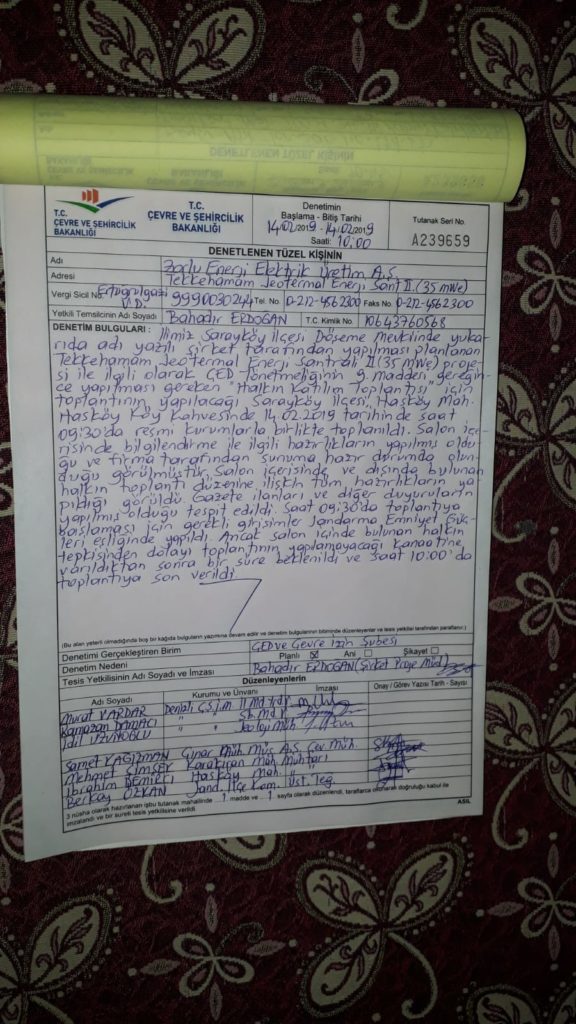 DENETLENEN TÜZEL KİŞİNİN
T.C.
ÇEVRE VE ŞEHİRCİLİK
BAKANLIĞI
T.C.
ÇEVRE VE ŞEHİRCİLİK
BAKANLIĞI
Denetimin
Başlama - Bitiş Tarihi
14/02/2019 - 14/02/2019
Saati: 10:00
Tutanak Seri No.
A239659
DENETLENEN TÜZEL KİŞİNİN
Adı Zorlu Enerji Elektrik Üretim A.Ş.
Adresi Tekkehamam Jeotermal Enerji Sant II.(35 mWe)
Vergi Sicil No Ertuğrulgazi V.D. 9990030244 Tel. No 0-212-4562300 Faks No 0-212-4562300
Yetkili Temsilcinin Adı Soyadı Bahadır ERDOĞAN T.C. Kimlik No. 10643760568
DENETİM BULGULARI : İlimiz Sarayköy İlçesi Döşeme Mevkiinde yuka-
rıda adı yazılı şirket tarafından yapılması planlanan
Tekkehamam Jeotermal Enerji Santralı II (35 mWe) proje-
si ile ilgili olarak ÇED Yönetmeliğinin 9. maddesi gereğin-
ce yapılması gereken "Halkın Katılım Toplantısı" için
toplantının yapılacağı Sarayköy İlçesi, Hasköy Mah.
Hasköy Köy Kahvesinde 14.02.2019 tarihinde saat
09:30'da resmi kurumlarla birlikte toplanıldı. Salon içe-
risinde bilgilendirme ile ilgili hazırlıkların yapılmış oldu-
ğu ve firma tarafından sunuma hazır durumda olun-
duğu görülmüştür. Salon içerisinde ve dışında bulunan
halkın toplantı düzenine ilişkin tüm hazırlıkların ya-
pıldığı görüldü. Gazete ilanları ve diğer duyuruların
yapılmış olduğu tespit edildi. Saat 09:30'da toplantıya
başlaması için gerekli girişimler Jandarma Emniyet Güç-
leri eşliğinde yapıldı. Ancak salon içinde bulunan halkın
tepkisinden dolayı toplantının yapılamayacağı kanaatine
varıldıktan sonra bir süre beklenildi ve saat 10:00'da
toplantıya son verildi
(Bu alan yeterli olmadığında boş bir kağıda bulguların yazımına devam edilir ve denetim bulgularının bitiminde düzenleyenler ve tesis yetkilisi tarafından paraflanır.)
Denetimi Gerçekleştiren Birim ÇED ve Çevre İzin Şubesi
Denetim Nedeni Planlı Ani Şikayet
Tesis Yetkilisinin Adı Soyadı ve İmzası Bahadır ERDOĞAN (Şirket Proje Müd)
Düzenleyenlerin
Adı Soyadı Kurumu ve Ünvanı İmzası Onay / Görev Yazısı Tarih - Sayısı
Murat VARDAR Denizli Ç.Ş.İ.M. İl Md. Yrd.
Ramazan " " Şb. Md.
İdil " " Jeoloji Müh.
Samet KAĞIZMAN Çınar Müh. Müş. A.Ş. Çev. Müh.
Mehmet ŞİMŞEK Karakıran Mah. Muhtarı
İbrahim DEMİRCİ Hasköy Mah. "
Berkay ÖZKAN Jand. İlçe Kom. Üst. Teğ.
3 nüsha olarak hazırlanan işbu tutanak mahallinde 1 madde ve 1 sayfa olarak düzenlendi, taraflarca okunarak doğruluğu kabul ile
imzalandı ve bir sureti tesis yetkilisine verildi
ASIL